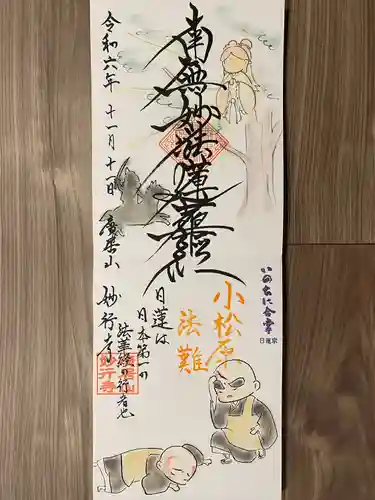 南無妙法蓮華経
令和六年 十一月十一日 廣栄山 妙行寺
いのちに合掌
日蓮宗
小松原
法難
日蓮は
日本第一の
法華経の行者也
妙行寺